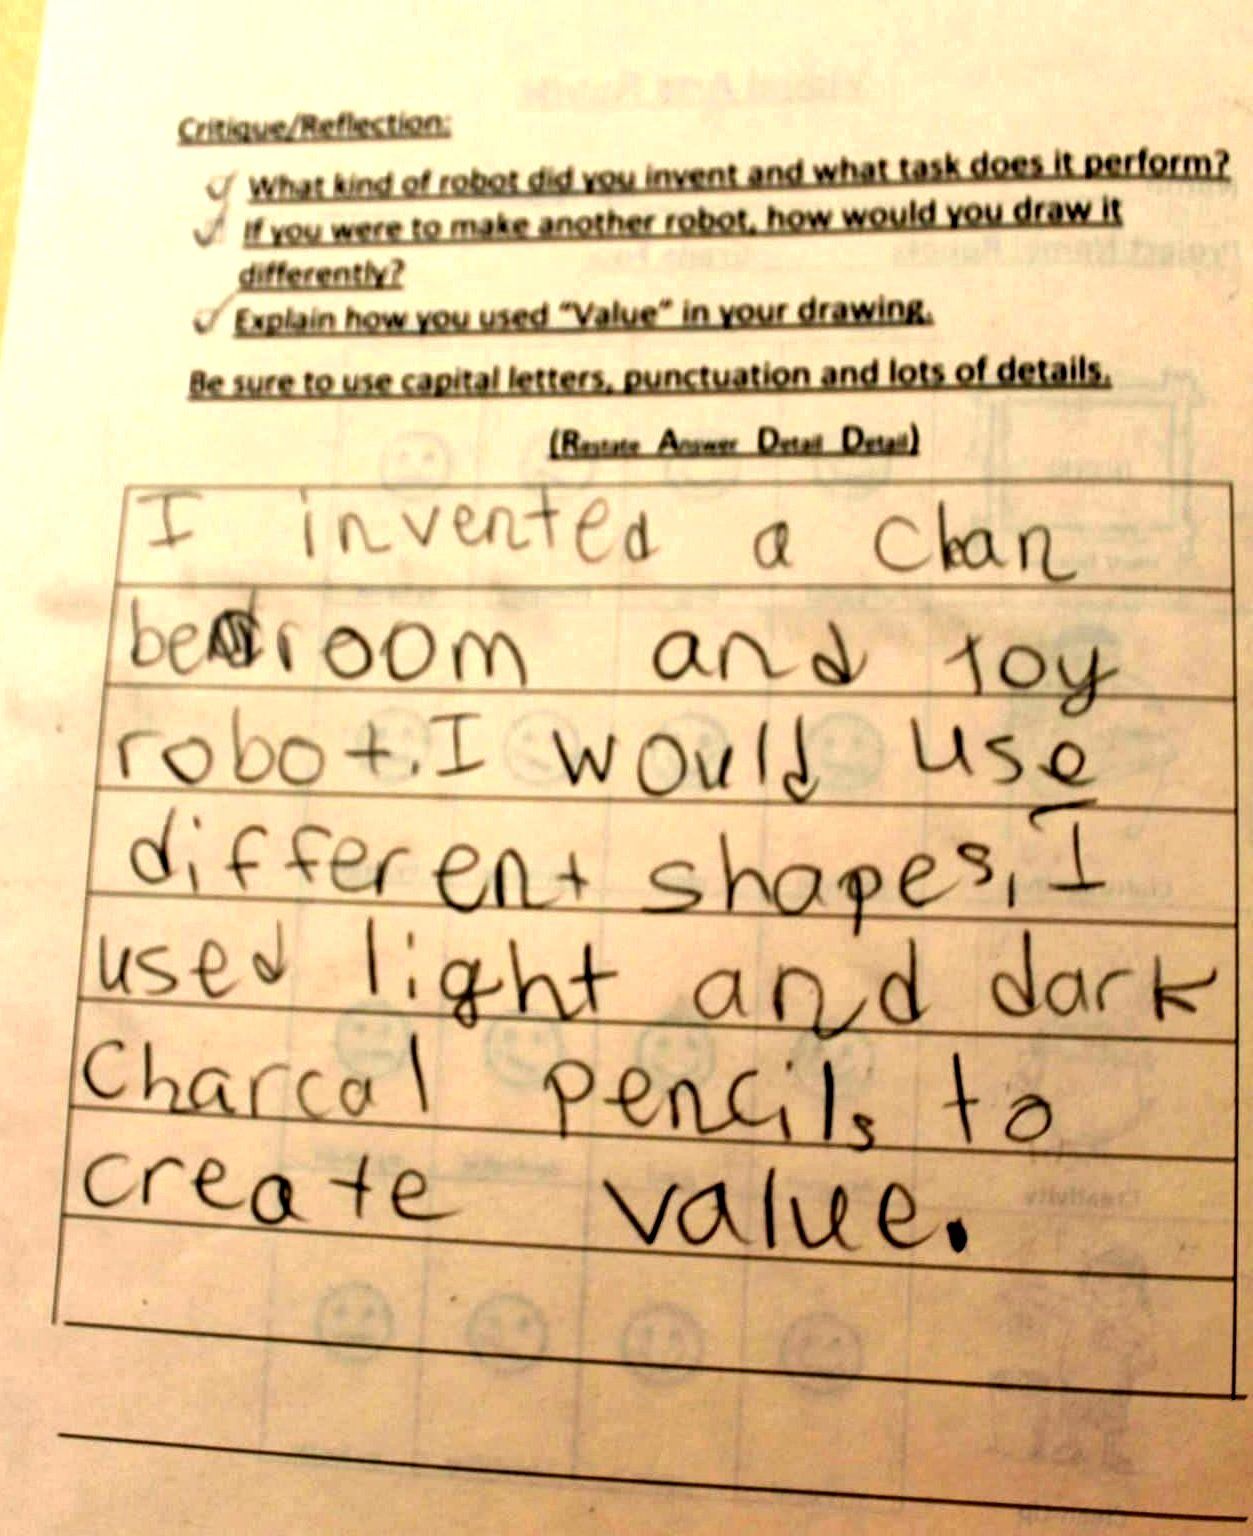 Critique/Reflection:
What kind of robot did you invent and what task does it perform?
If you were to make another robot, how would you draw it
differently?
Explain how you used "Value" in your drawing.
Be sure to use capital letters, punctuation and lots of details.
(Restate Answer Detail Detail)
I invented a clean
bedroom and toy
robot. I would use
different shapes, I
used light and dark
charcal pencils to
create value.